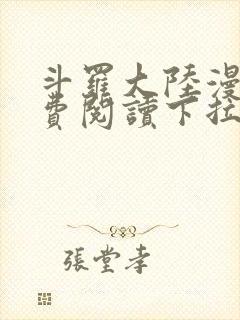 斗羅大陸漫
費閱讀下拉
張堂孝